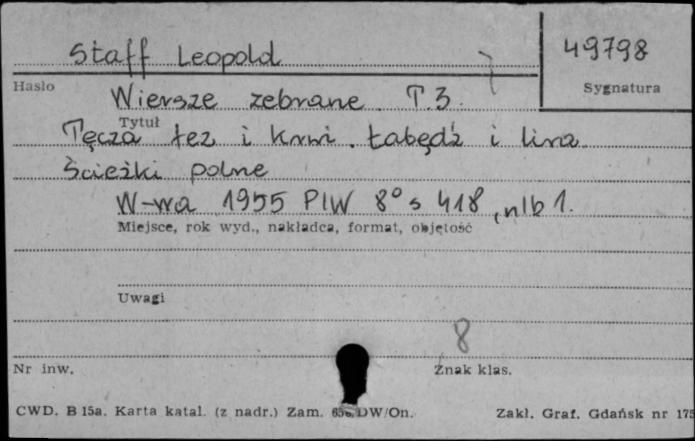 Staff Leopold
49798
Hasło
Sygnatura
Wiersze zebrane. T. 3.
Tytuł
Tęcza łez i krwi. Łabędź i lira
Ścieżki polne
W-wa 1955 PIW 8° s 418, nlb 1.
Miejsce, rok wyd., nakładca, format, objętość
Uwagi
8
Nr inw.
Znak klas.
CWD. B 15a. Karta katal. (z nadr.) Zam. DW/On.
Zakł. Graf. Gdańsk nr 175